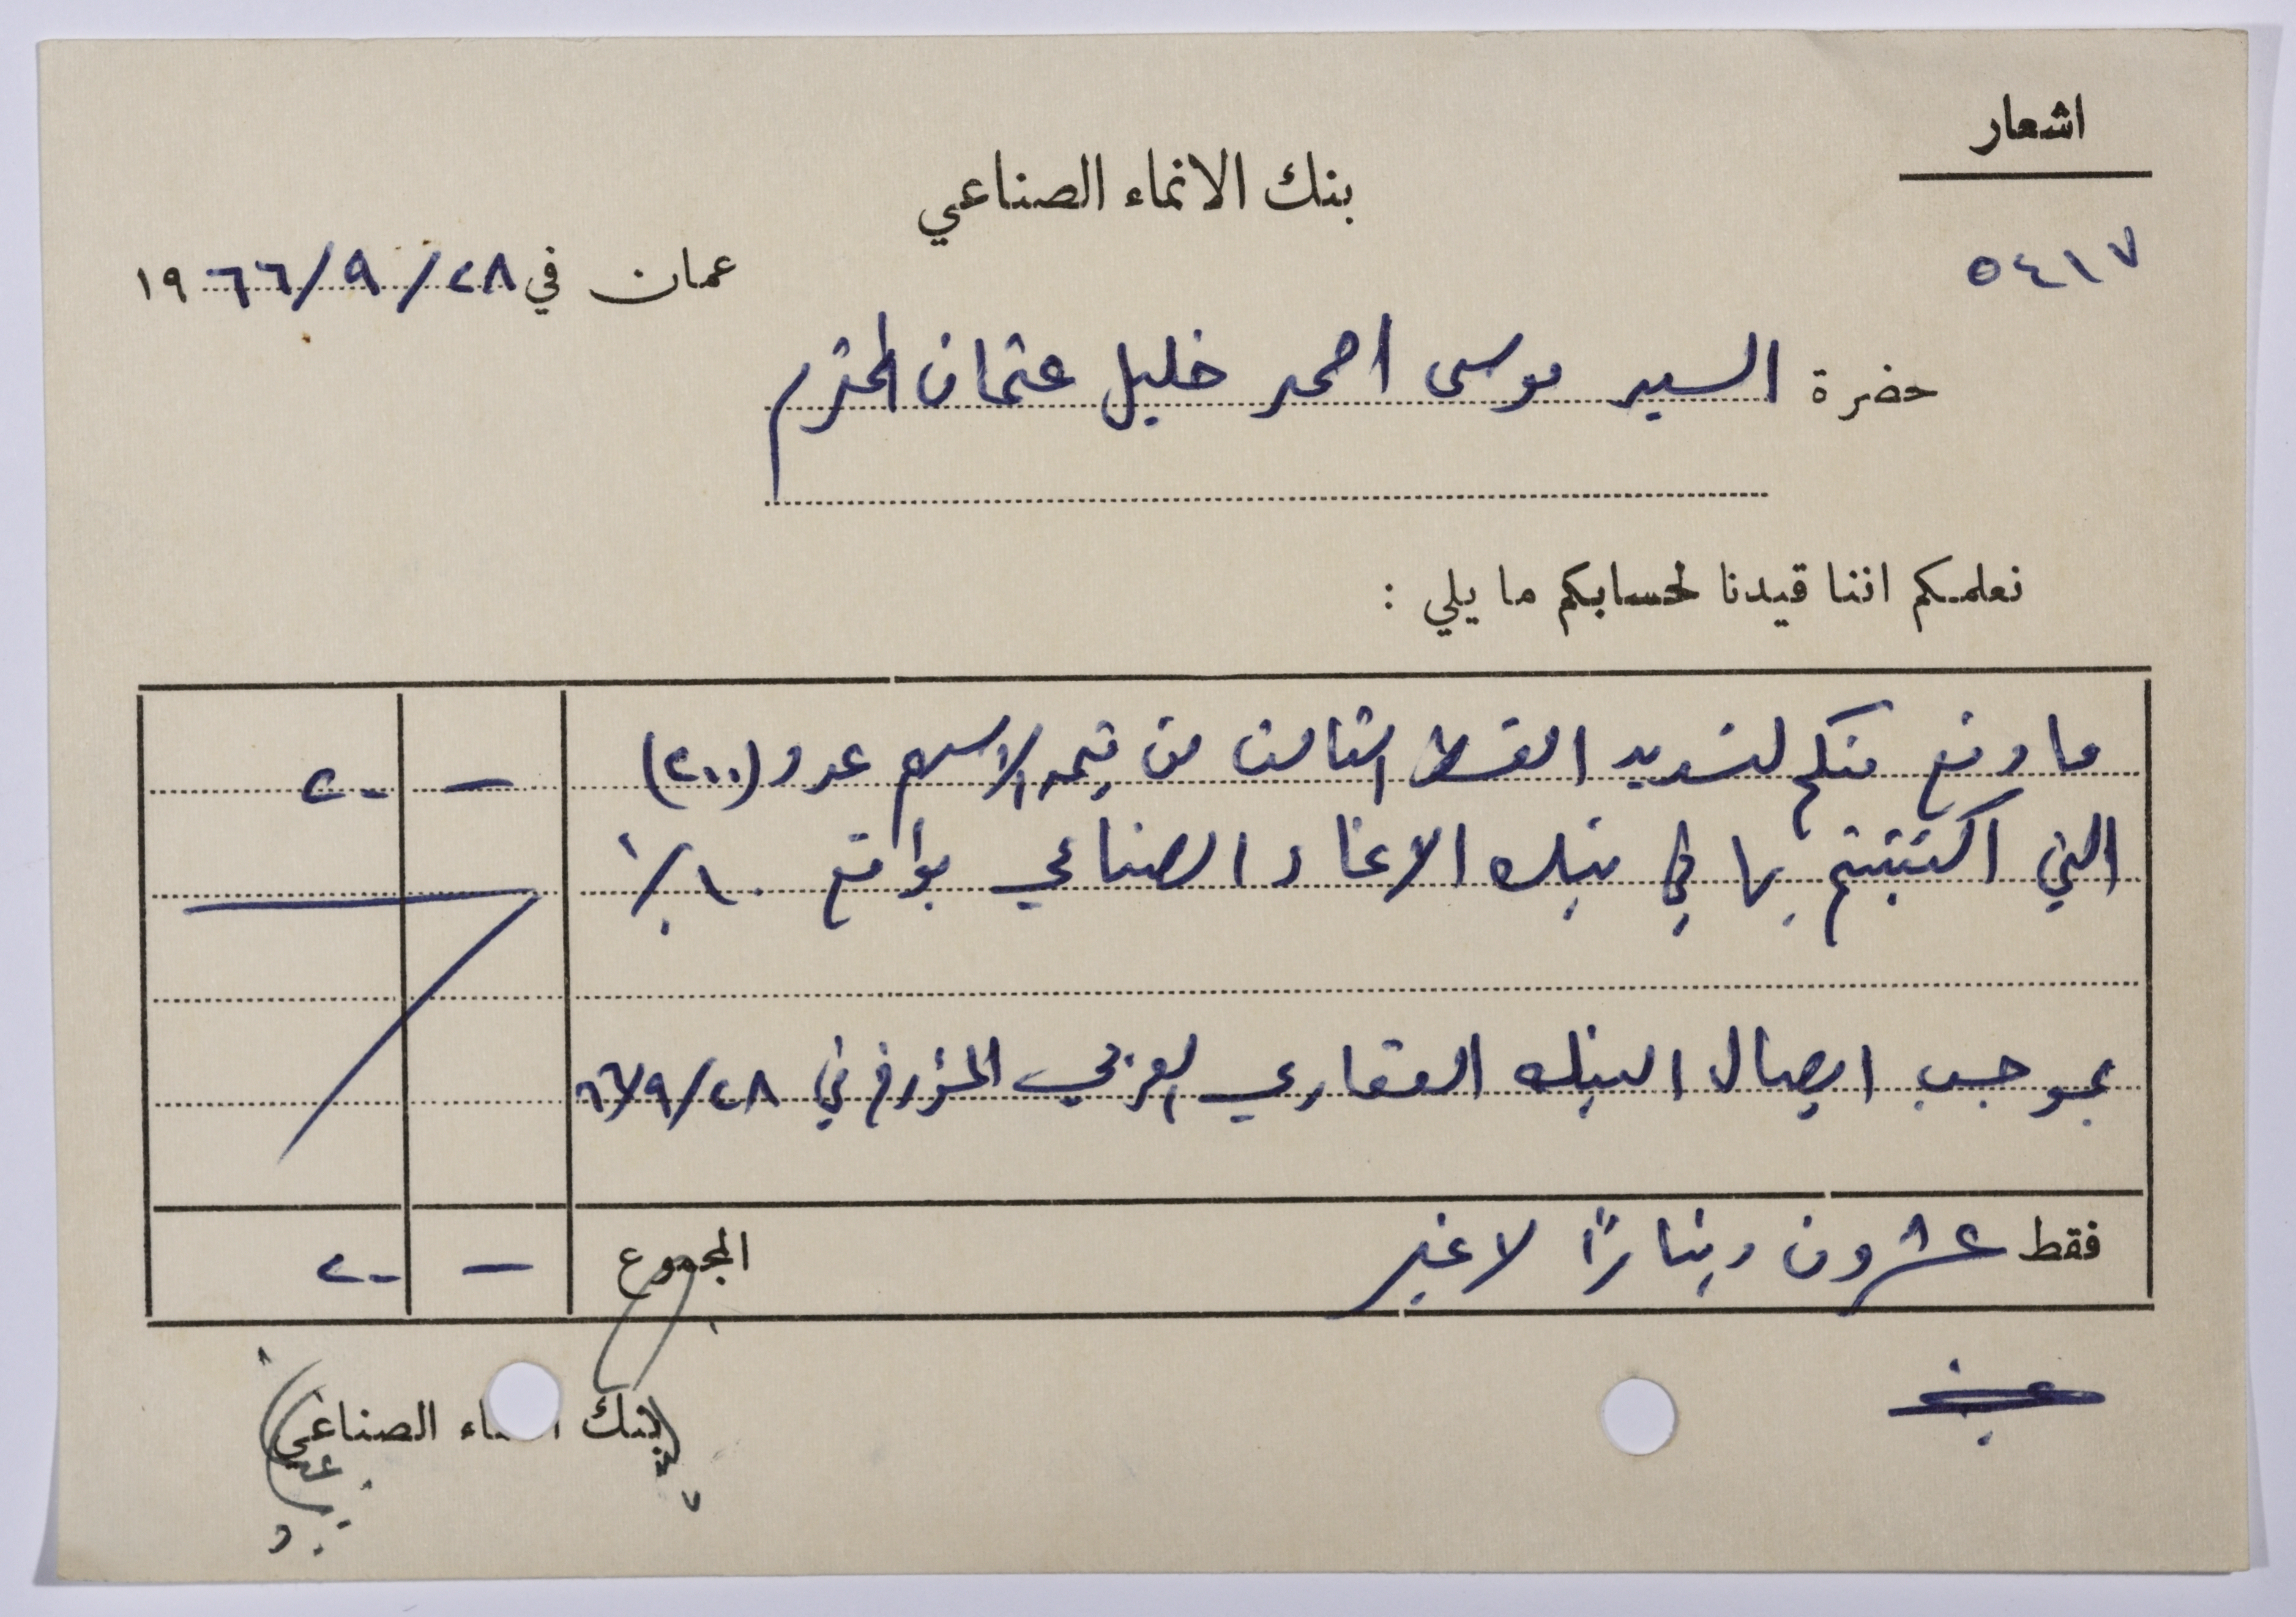 اشعار
بنك الانماء الصناعي
٥٤١٧
عمان في ٢٨/٩/١٩٦٦
حضرة السيد موسى احمد خليل عثمان المحترم
نعلمكم اننا قيدنا لحسابكم ما يلي :
ما دفع منكم لتسديد القسط الثالث من قيمة الاسهم عدد (٢٠٠) — ٢٠
التي اكتتبتم بها في بنك الانماء الصناعي بواقع ١٠٪
بموجب ايصال البنك العقاري العربي المؤرخ في ٢٨/٩/٦٦
فقط عشرون ديناراً لا غير المجموع — ٢٠
بنك الانماء الصناعي